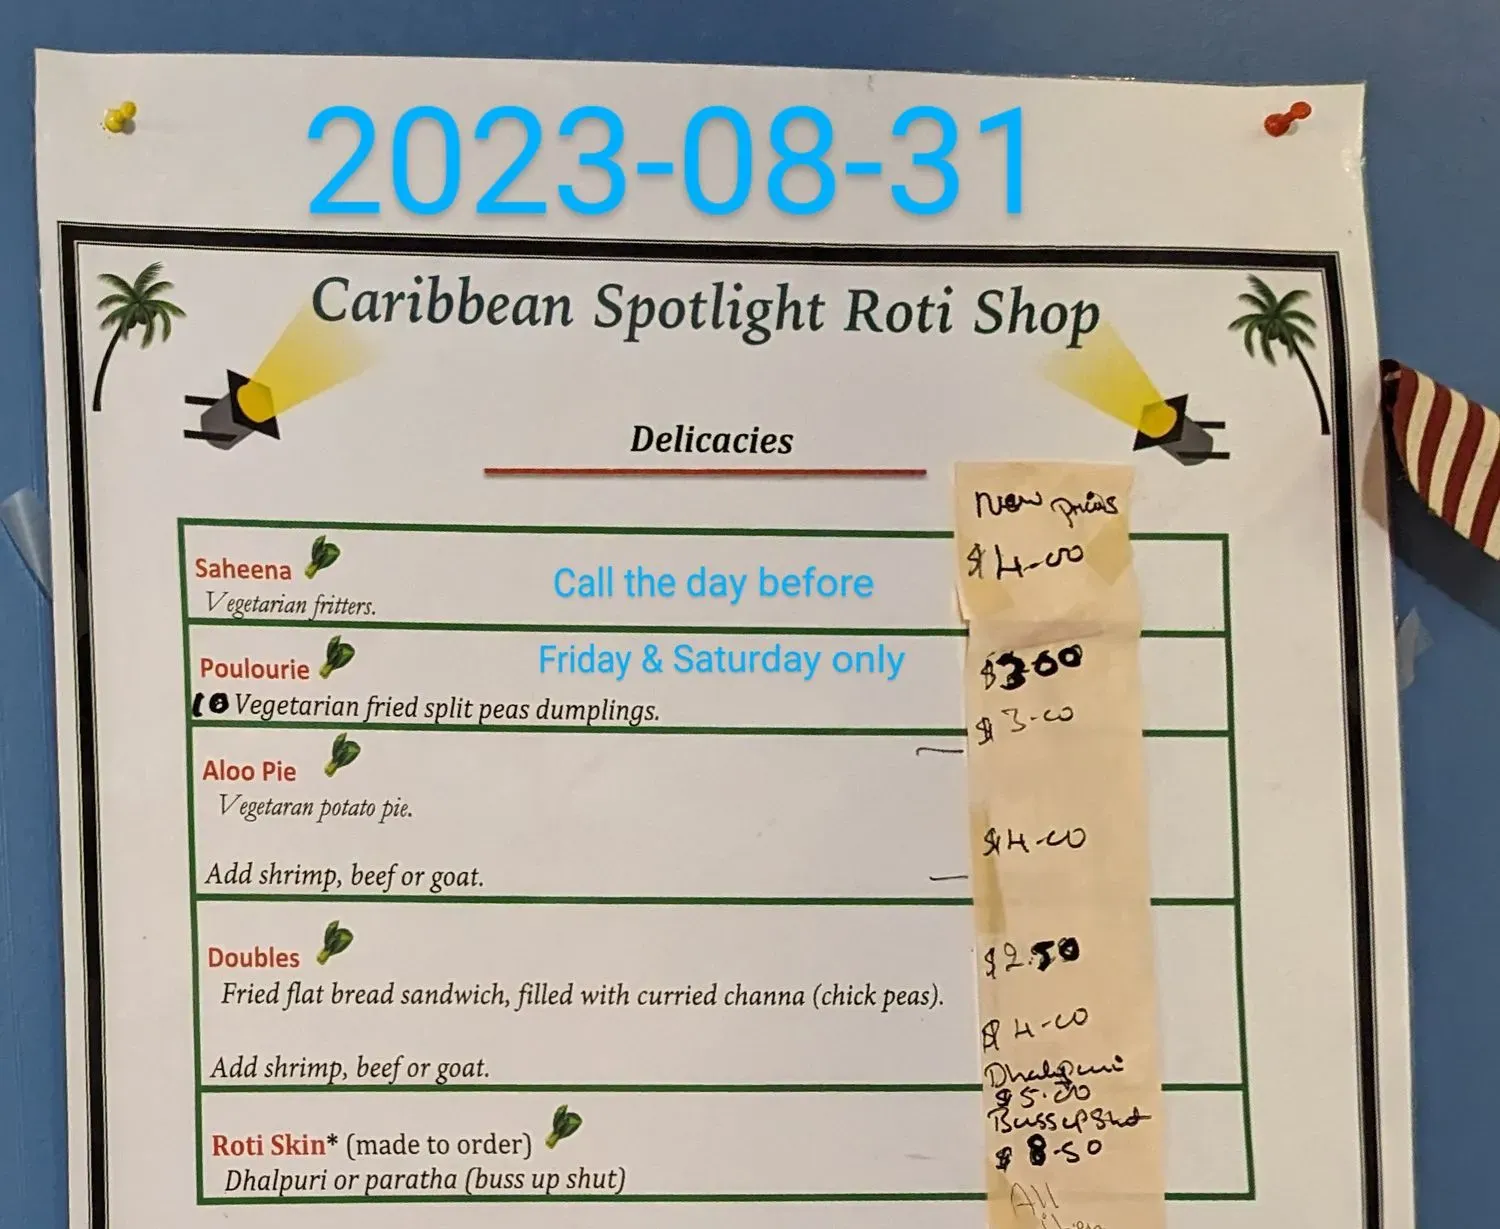 2023-08-31
Caribbean Spotlight Roti Shop
Delicacies
New prices
Saheena Call the day before $4-00
Vegetarian fritters.
Poulourie Friday & Saturday only $3.00
10 Vegetarian fried split peas dumplings.
$3-00
Aloo Pie
Vegetaran potato pie.
$4-00
Add shrimp, beef or goat.
Doubles $2.50
Fried flat bread sandwich, filled with curried channa (chick peas).
$4-00
Add shrimp, beef or goat.
Dhalpuri
$5.00
Buss up Shut
Roti Skin* (made to order) $8.50
Dhalpuri or paratha (buss up shut)
All